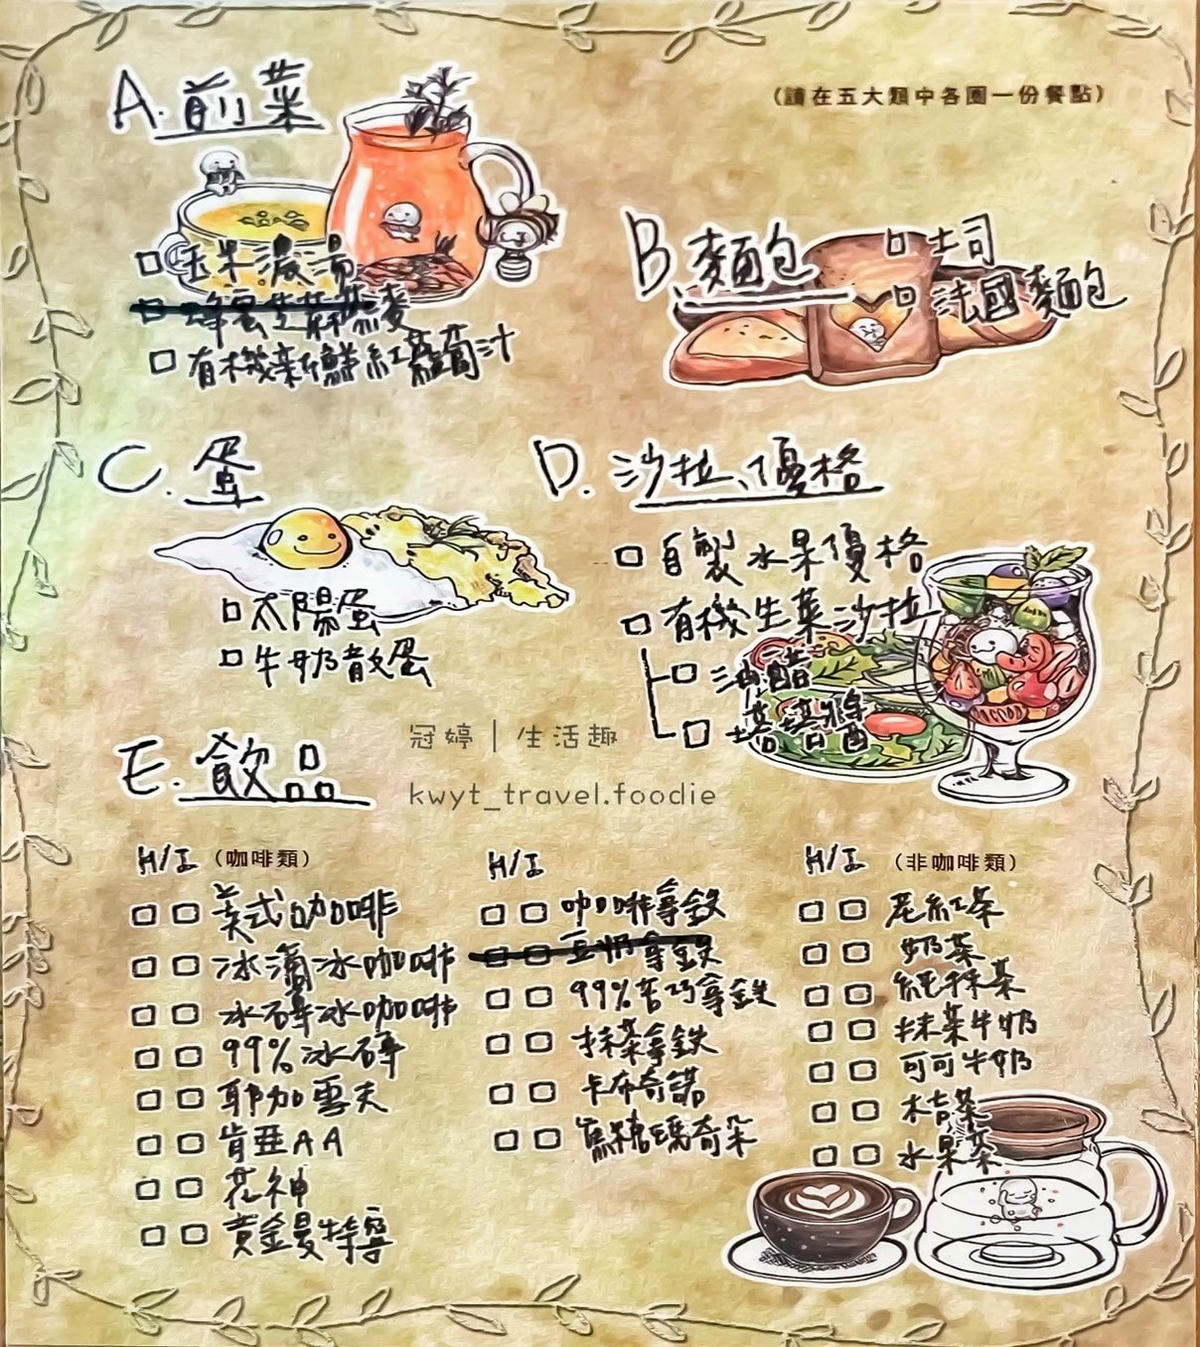 A. 前菜
(請在五大類中各圈一份餐點)
□ 玉米濃湯
□ 蜂蜜生菜燕麥
□ 有機新鮮紅蘿蔔汁
B. 麵包
□ 土司
□ 法國麵包
C. 蛋
□ 太陽蛋
□ 牛奶散蛋
D. 沙拉、優格
□ 自製水果優格
□ 有機生菜沙拉
□ 油醋
□ 塔塔醬
冠婷 | 生活趣
kwyt_travel.foodie
E. 飲品
H/I (咖啡類)
□ □ 美式咖啡
□ □ 冰滴冰咖啡
□ □ 冰磚冰咖啡
□ □ 99%冰磚
□ □ 耶加雪夫
□ □ 肯亞AA
□ □ 花神
□ □ 黃金曼特寧
H/I
□ □ 咖啡拿鉄
□ □ 豆奶拿鉄
□ □ 99%苦巧拿鉄
□ □ 抹茶拿鉄
□ □ 卡布奇諾
□ □ 焦糖瑪奇朵
H/I (非咖啡類)
□ □ 花紅茶
□ □ 奶茶
純抹茶
□ □ 抹茶牛奶
□ □ 可可牛奶
□ □ 桔茶
□ □ 水果茶